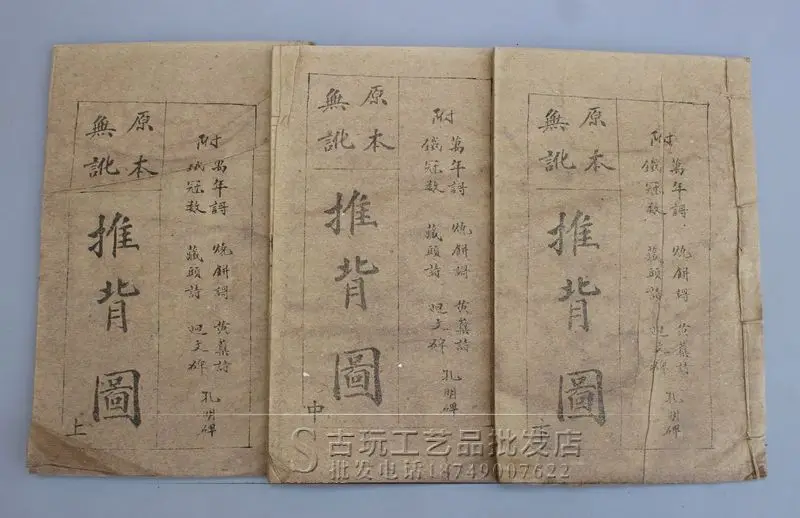 附
萬年謌 燒餅謌 黄蘗詩 孔明碑
鐵冠数 藏頭詩 文碑
原本
無訛
推背圖
上
附
萬年謌 燒餅謌 黄蘗詩 孔明碑
鐵冠数 藏頭詩 文碑
原本
無訛
推背圖
中
附
萬年謌 燒餅謌 黄蘗詩 孔明碑
鐵冠数 藏頭詩 文碑
原本
無訛
推背圖
古玩工艺品批发店
批发电话18749007622